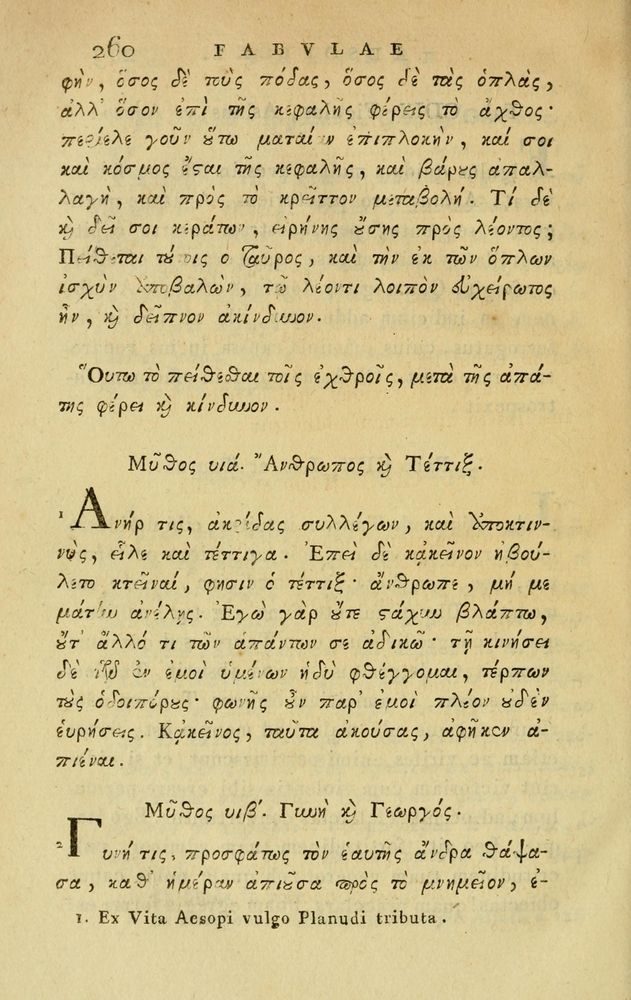 260 FABVLAE
φὴν, ὅσος δὲ τοὺς πόδας, ὅσος δὲ τὰς ὁπλὰς,
ἀλλ' ὅσον ἐπὶ τῆς κεφαλῆς φέρεις τὸ ἄχθος·
περίελε γοῦν ὅτω ματαίαν ἐπιπλοκὴν, καί σοι
καὶ κόσμος ἔςαι τῆς κεφαλῆς, καὶ βάρȣς ἀπαλ-
λαγὴ, καὶ πρὸς τὸ κρεῖττον μεταβολή. Τί δὲ
ϗ δεῖ σοι κεράτων, εἰρήνης ȣ̓́σης πρὸς λέοντος;
Πείθεται τȣ́τοις ὁ ταῦρος, καὶ τὴν ἐκ τῶν ὅπλων
ἰσχὺν ὑποβαλὼν, τῷ λέοντι λοιπὸν εὐχείρωτος
ἦν, ϗ δεῖπνον ἀκίνδυνον.
Οὕτω τὸ πείθεσθαι τοῖς ἐχθροῖς, μετὰ τῆς ἀπά-
της φέρει ϗ κίνδυνον.
Μῦθος υιά. Ἄνθρωπος ϗ Τέττιξ.
1 Ἀνήρ τις, ἀκρίδας συλλέγων, καὶ ὑποκτιν-
νὺς, εἷλε καὶ τέττιγα. Ἐπεὶ δὲ κἀκεῖνον ἠβού-
λετο κτεῖναί, φησιν ὁ τέττιξ· ἄνθρωπε, μή με
μάτην ἀνέλῃς. Ἐγὼ γὰρ ȣ̓́τε ςάχυν βλάπτω,
ȣ̓́τ' ἄλλό τι τῶν ἁπάντων σε ἀδικῶ· τῇ κινήσει
δὲ τῶν ἐν ἐμοὶ ὑμένων ἡδὺ φθέγγομαι, τέρπων
τȣ̀ς ὁδοιπόρȣς· φωνῆς ȣ̓͂ν παρ' ἐμοὶ πλέον ȣ̓δὲν
εὑρήσεις. Κἀκεῖνος, ταῦτα ἀκούσας, ἀφῆκεν ἀ-
πιέναι.
Μῦθος υιβ'. Γυνὴ ϗ Γεωργός.
2 Γυνή τις, προσφάτως τὸν ἑαυτῆς ἄνδρα θάψα-
σα, καθ' ἡμέραν ἀπιȣ͂σα πρὸς τὸ μνημεῖον, ἐ-
1. Ex Vita Aesopi vulgo Planudi tributa.